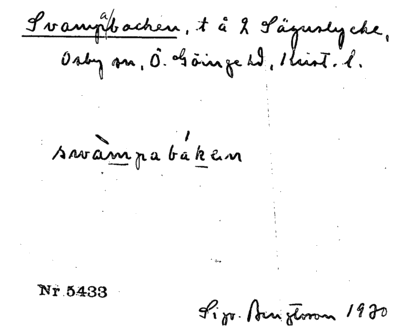 Svampabacken, t å 2 Såguslycke,
Osby sn, Ö. Göinge hd, Krist. l.
swàmpabáken
Nr 5433
Sigv. Bengtsson 1930